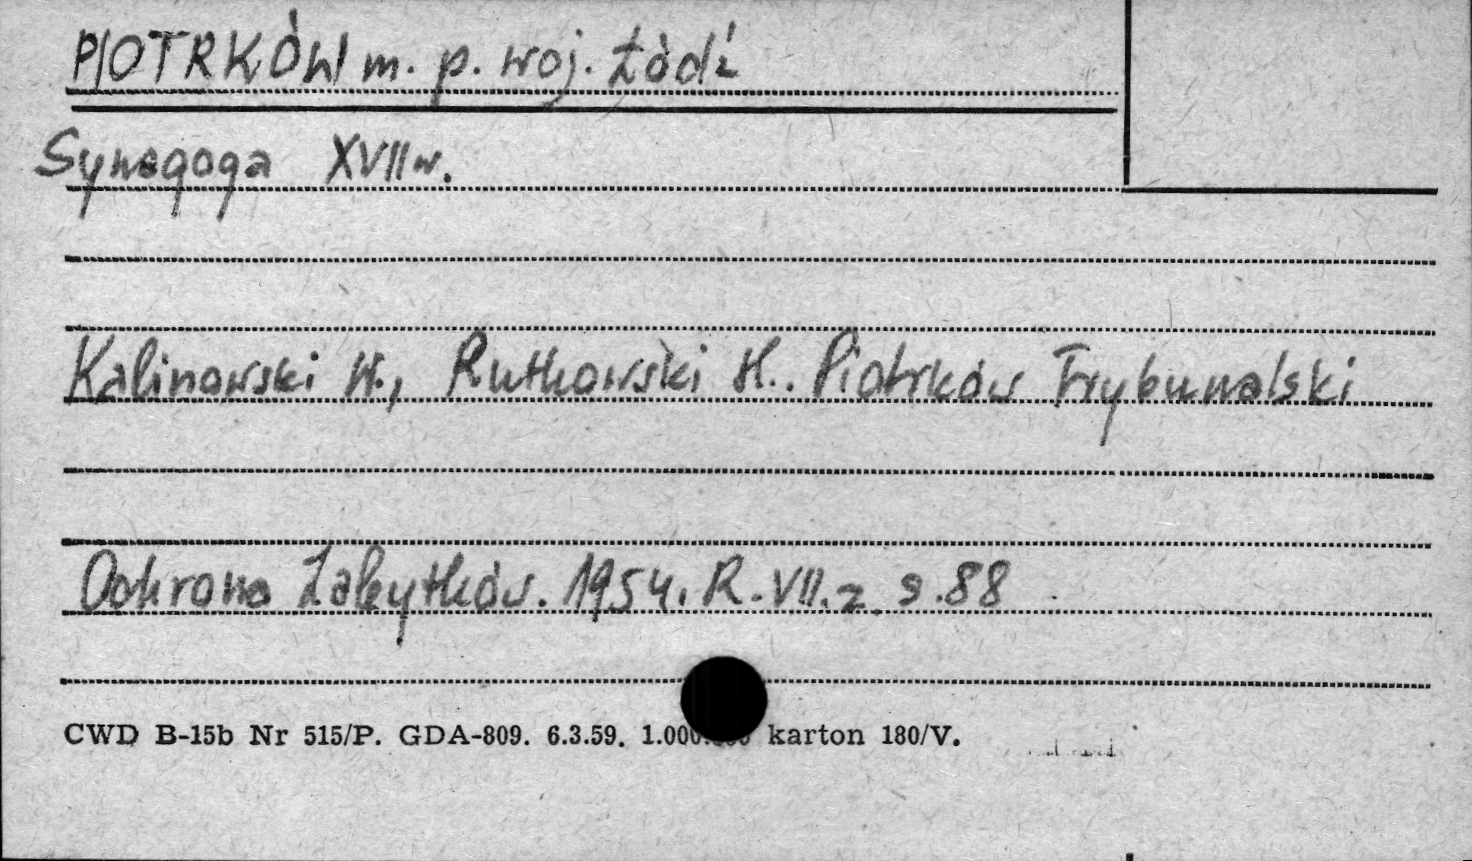 PIOTRKÓW m. p. woj. Łódź
Synagoga XVII w.
Kalinowski W., Rutkowski H. Piotrków Trybunalski
Ochrona Zabytków. 1954. R. VII. z. s. 88
CWD B-15b Nr 515/P. GDA-809. 6.3.59. 1.000.000 karton 180/V.